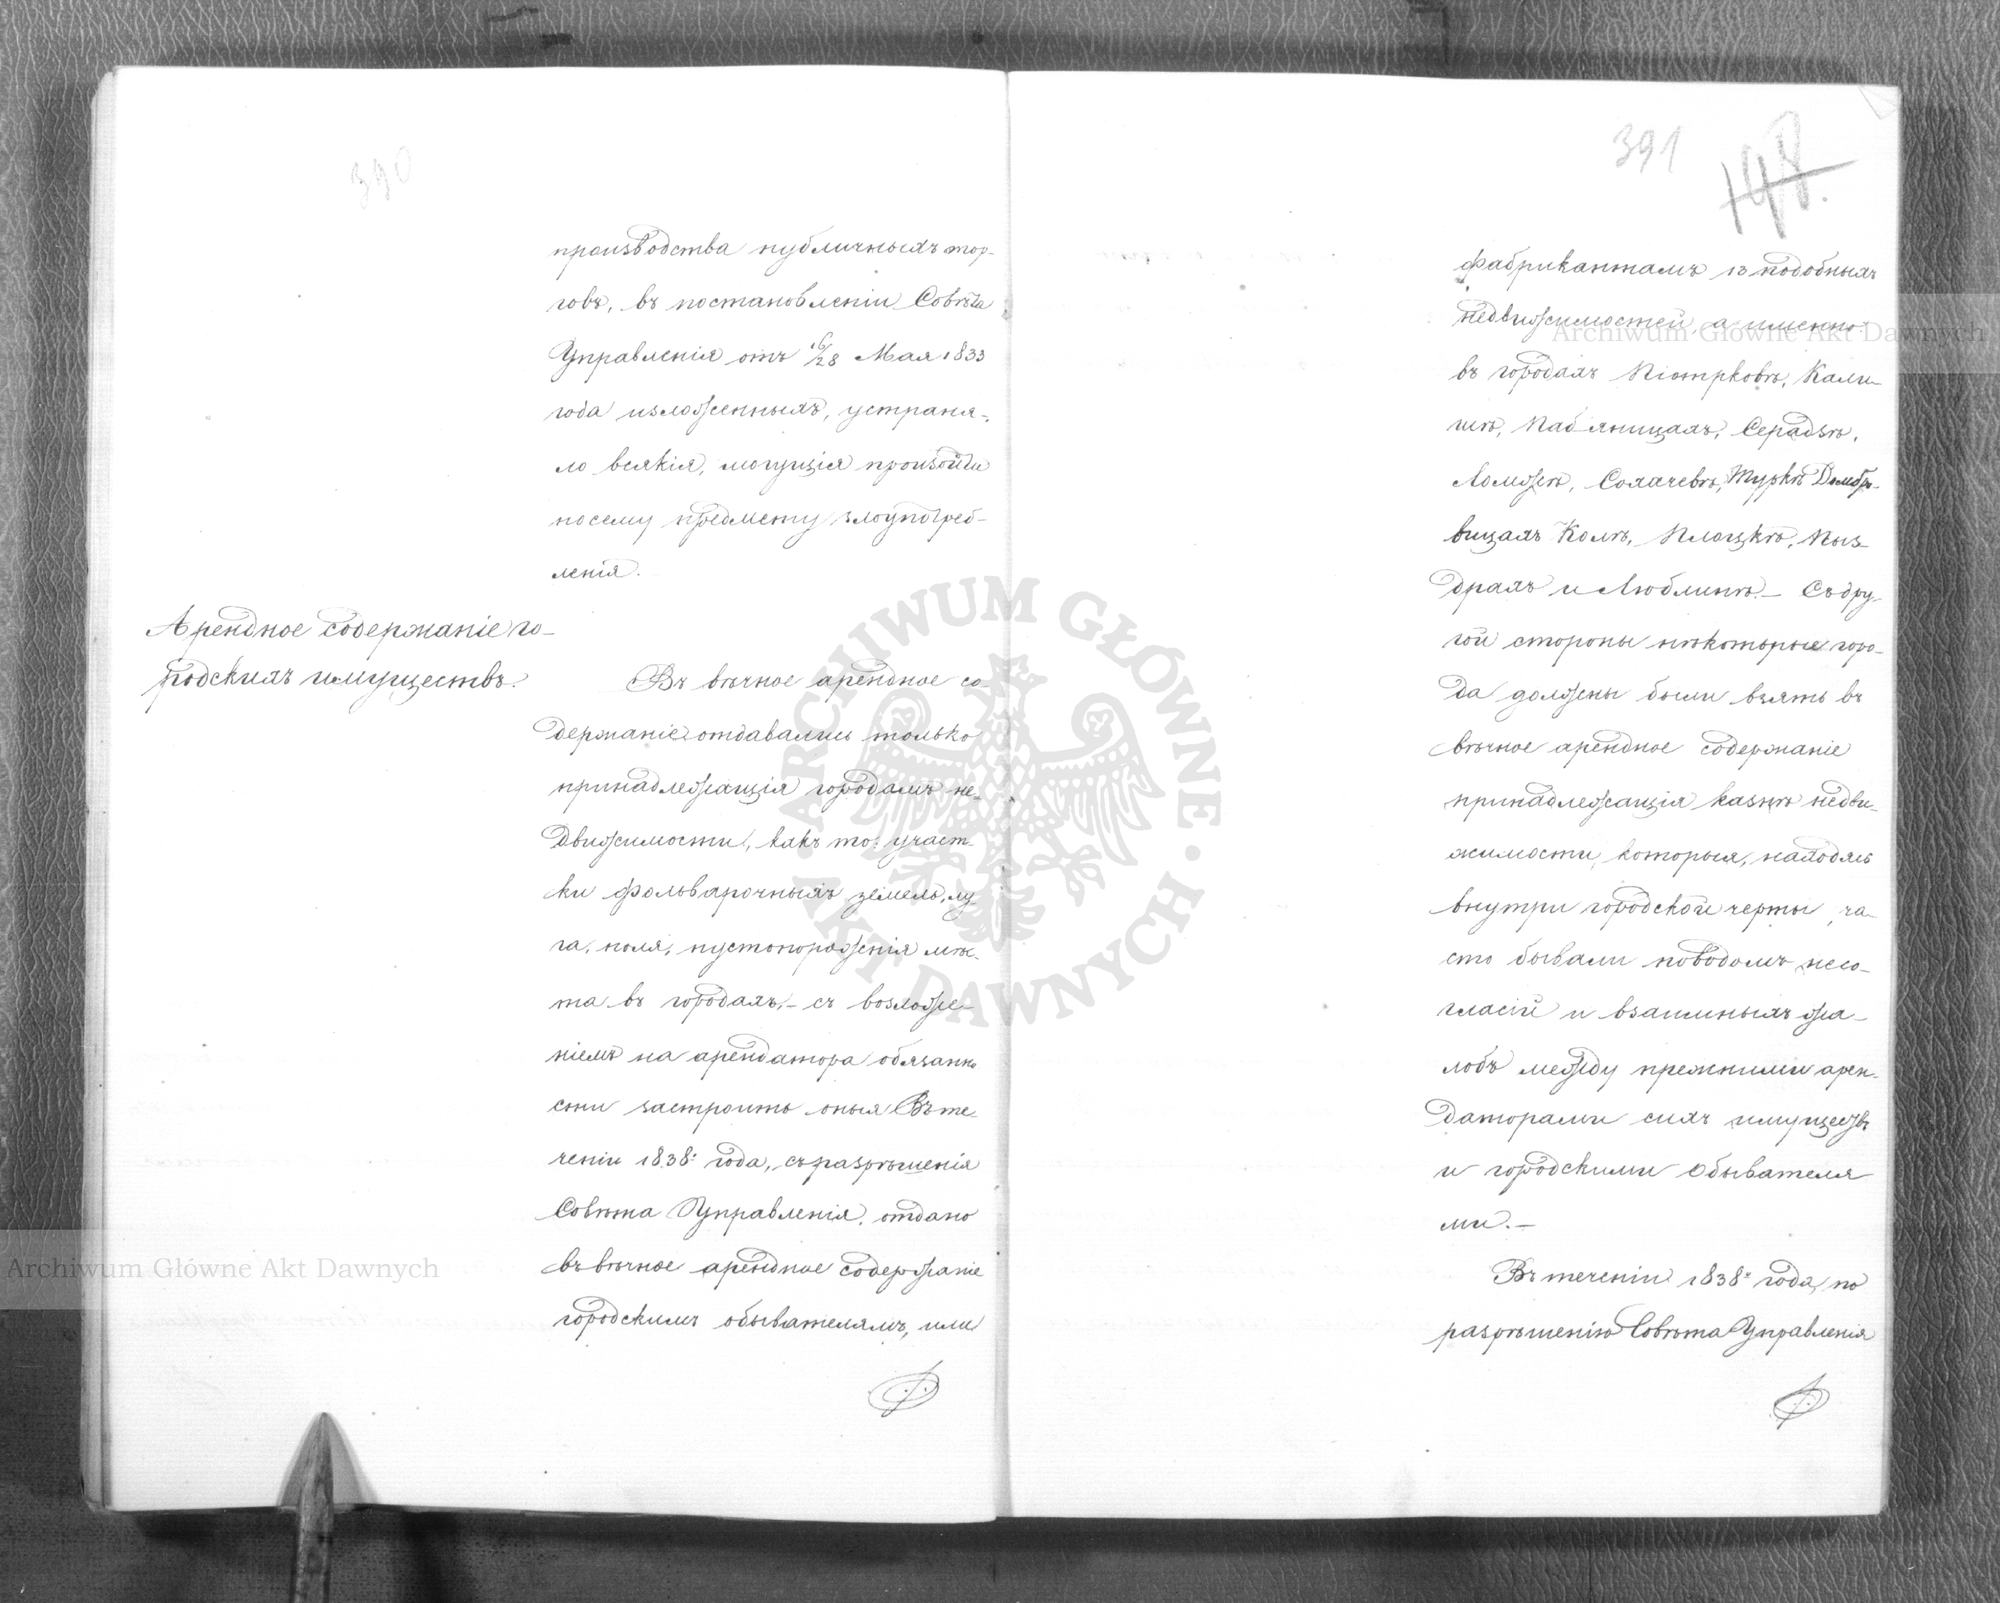 390
производства публичныхъ тор-
говъ, въ постановленіи Совѣта
Управленія отъ 16/28 Мая 1833
года изложенныхъ, устраня-
ло всякія, могущія произойти
посему предмету злоупотреб-
ленія.
Арендное содержаніе го-
родскихъ имуществъ.
Въ вѣчное арендное со-
держаніе отдавались только
принадлежащія городамъ не-
движимости, какъ то: участ-
ки фольварочныхъ земель, лу-
га, поля, пустопорожнія мѣс-
та въ городахъ, – съ возложе-
ніемъ на арендатора обязанно
сти застроить оныя Въ те-
ченіи 1838: года, съ разрѣшенія
Совѣта Управленія, отдано
въ вѣчное арендное содержаніе
городскимъ обывателямъ, или
391
148.
фабрикантамъ 13 подобныхъ
недвижимостей, а именно:
въ городахъ Піотрковѣ, Кали-
шѣ, Пабяницахъ, Серадзѣ,
Ломжѣ, Сохачевѣ, Туркѣ Домбро-
вицахъ Колѣ, Плоцкѣ, Пыз-
драхъ и Люблинѣ. – Съ дру-
гой стороны нѣкоторые горо-
да должны были взять въ
вѣчное арендное содержаніе
принадлежащія казнѣ недви-
жимости, которыя, находясь
внутри городской черты, ча-
сто бывали поводомъ несо-
гласій и взаимныхъ жа-
лобъ между прежними арен-
даторами сихъ имуществъ
и городскими обывателя
ми. –
Въ теченіи 1838: года, по
разрѣшенію Совѣта Управленія
Archiwum Główne Akt Dawnych
Archiwum Główne Akt Dawnych
ARCHIWUM GŁÓWNE · AKT DAWNYCH ·